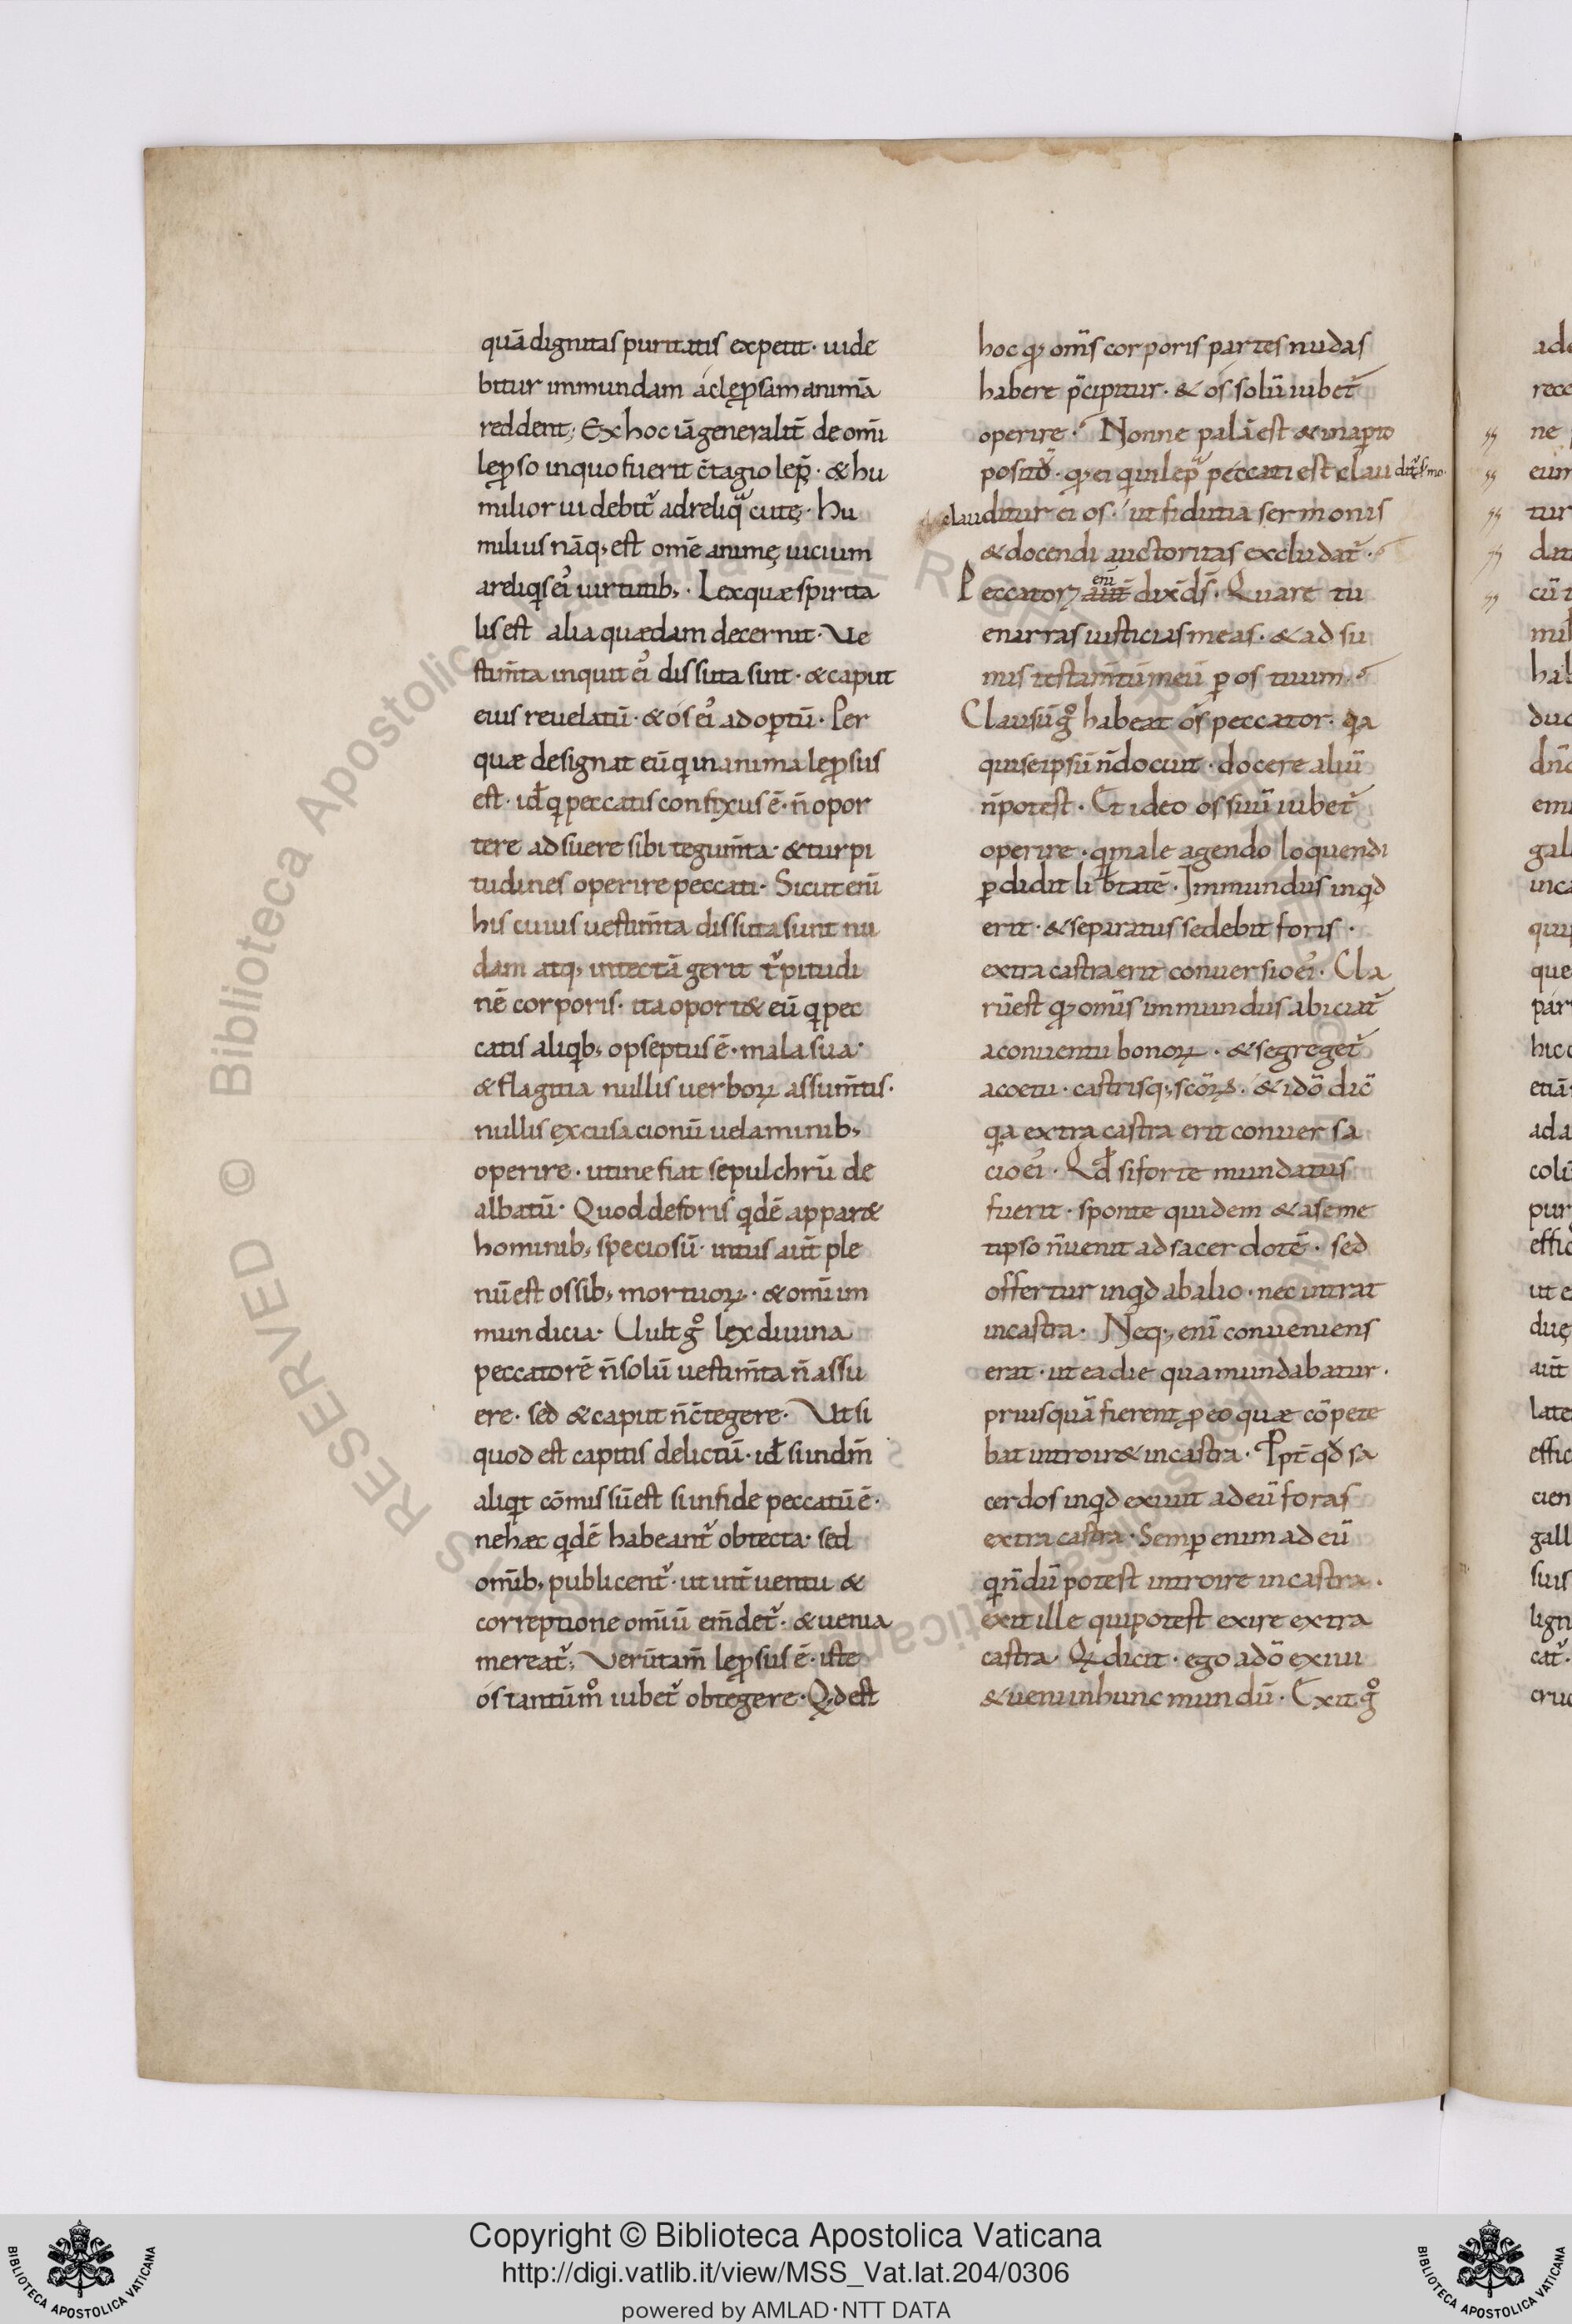 quā dignitas puritatis expetit · uide
bitur immundam ac lęp̱sam animā
reddent; Ex hoc iā generalit̄ de om̄i
lep̱so in quo fuerit c̄tagio lep̱ · & hu
milior uidebit̉ ad reliq̉ cutę · Hu
milius nāq; est om̄e animę uicium
a reliq̉s ei᾽ uirtutib; · Lex quæ spirita
lis est alia quædam decernit · Ve
stim̄ta inquit ei᾽ dissuta sint · & caput
eius reuelatū · & os ei᾽ adop̱tū · Per
quæ designat eū q in anima lep̱sus
est · id ÷ q peccatis confixus ē · n̄ opor
tere adsuere sibi tegum̄ta · & turpi
tudines operire peccati · Sicut enī
his cuius uestim̄ta dissuta sunt nu
dam atq; intectā gerit t᾽pitudi
nē corporis · ita oport& eū q pec
catis aliqb; opseptus ē · mala sua ·
& flagitia nullis uerboꝝ assum̄tis ·
nullis excusacionū uelaminib;
operire · uti ne fiat sepulchrū de
albatū · Quod deforis qdē appar&
hominib; speciosū · intus aut̄ ple
nū est ossib; mortuoꝝ · & om̄i im
mundicia · Uult gº lęx diuina
peccatorē n̄ solū uestim̄ta n̄ assu
ere · sed & caput n̄ c̄tegere · Ut si
quod est capitis delictū · id ÷ si in dm̄
aliqt cōmissū est si in fide peccatū ē ·
ne hæc qdē habeant̉ obtecta · sed
om̄ib; publicent̉ · ut int̄uentu &
correptione om̄iū em̄det̉ · & uenia
mereat̉; Verūtam̄ lep̱sus ē · iste
os tantūmº iubet̉ obtegere · Qd est
hoc qꝫ om̄is corporis partes nudas
habere p̄cipitur · & os solū iubet̉
operire · Nonne palā est & in ap̱to
positū · qꝫ ei q in lep̉ peccati est clau dit̉ sermo ·
clauditur ei os · ut fidutia sermonis
& docendi auctoritas excludat̉ ·
Peccatorꝫ aut̄ enī dix̄ ds̄ · Quare tu
enarras iusticias meas · & adsu
mis testam̄tū meū p̱ os tuum ·
Clausū gº habeat os peccator · qa
qui se ipsū n̄ docuit · docere aliū
n̄ potest · Et ideo os suū iubet̉
operire · q male agendo loquendi
p̱didit lib̄tatē · Immundus inqd
erit · & separatus sedebit foris ·
extra castra erit conuersio ei᾽ · Cla
rū est qꝫ om̄is immundus abiciat̉
a conuentu bonoꝝ · & segreget̉
a coetu · castrisq; sc̄oꝝ · & idō dic̄
qa extra castra erit conuersa
cio ei᾽ · Qd ÷ si forte mundatus
fuerit · sponte quidem & a seme
tipso n̄ uenit ad sacerdotē · sed
offertur inqd ab alio · nec intrat
in castra · Neq; enī conueniens
erat · ut ea die qua mundabatur ·
priusquā fierent p̱ eo quæ cōpete
bat introir& in castra · Ppt̄ qd sa
cerdos inqd exiuit ad eū foras
extra castra · Semp̱ enim ad eū
q n̄dū potest introire in castra ·
exit ille qui potest exire extra
castra · Qꝫ dicit · ego a dō exiui
& ueni in hunc mundū · Exit gº
Copyright © Biblioteca Apostolica Vaticana
http://digi.vatlib.it/view/MSS_Vat.lat.204/0306
powered by AMLAD·NTT DATA